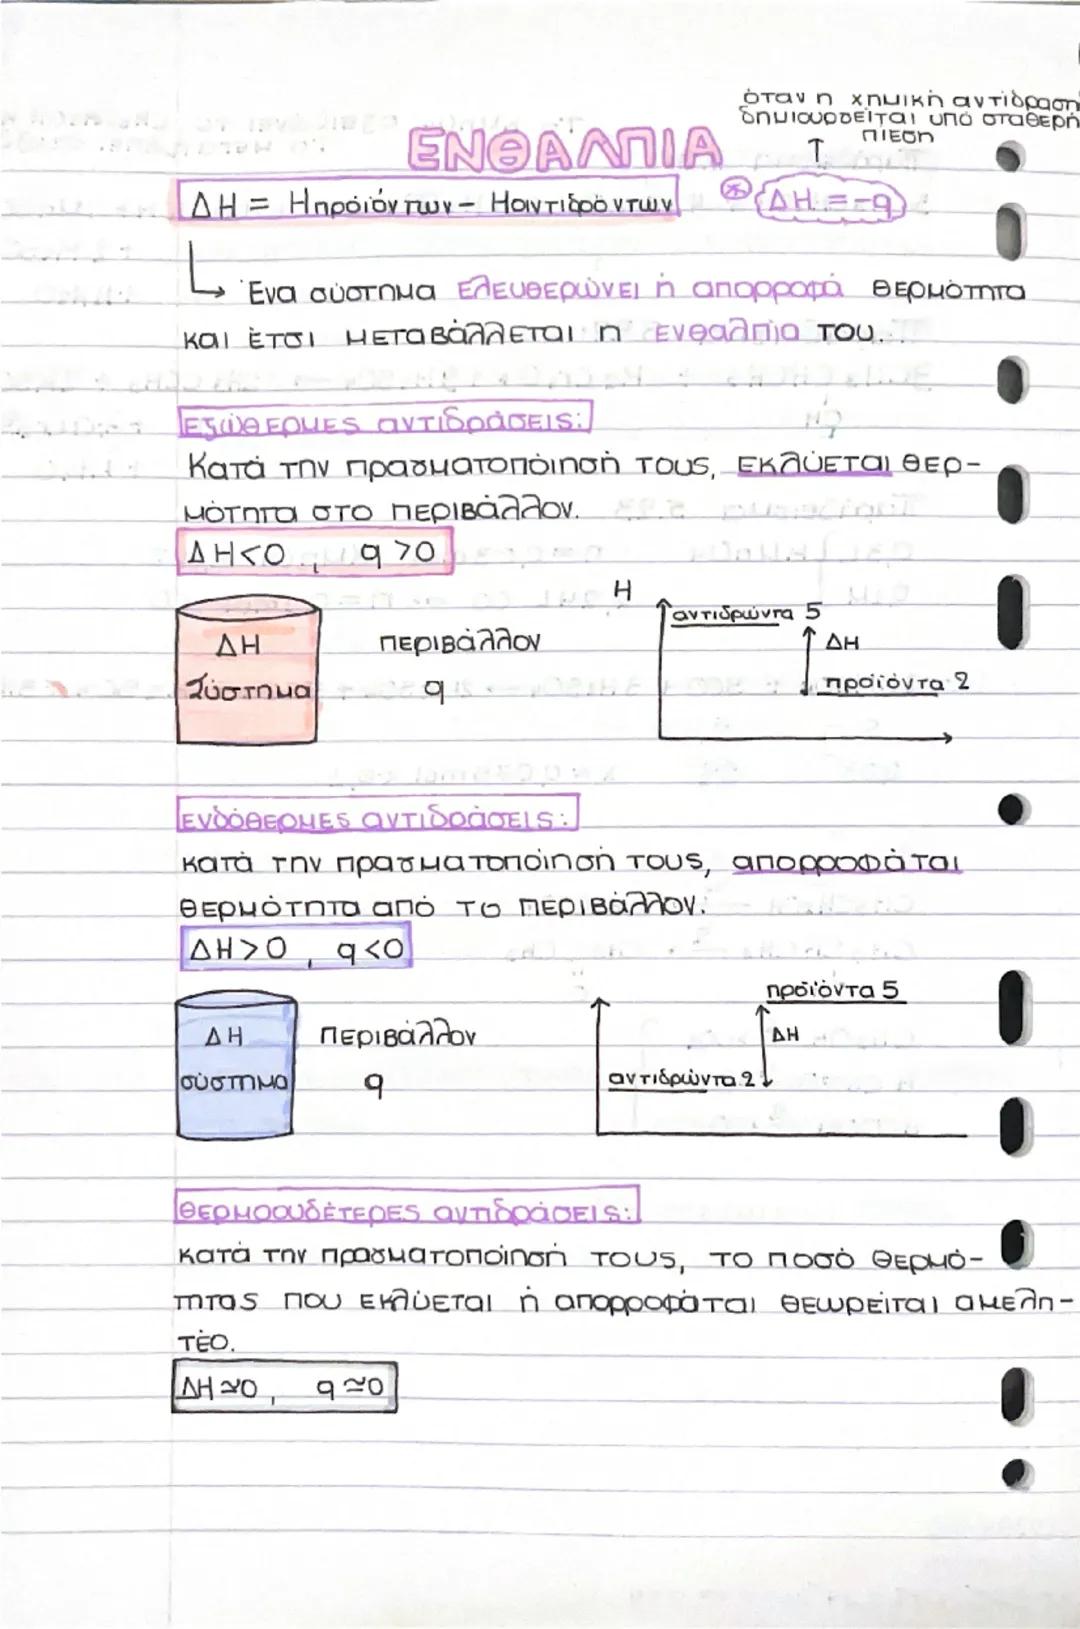 όταν η χημική αντίδραση
δημιουργείται υπό σταθερή
πίεση
ΕΝΘΑΛΠΙΑ
ΔΗ = Ηπροϊόντων - Ηαντιδρόντων
* ΔΗ = -q
Ένα σύστημα ελευθερώνει ή απορροφά θερμότητα
και έτσι μεταβάλλεται η ενθαλπία του.
Εξώθερμες αντιδράσεις:
Κατά την πραγματοποίησή τους, εκλύεται θερ-
μότητα στο περιβάλλον.
ΔΗ<0, q>0
Η
αντιδρώντα 5
ΔΗ
περιβάλλον
ΔΗ
Σύστημα
q
προϊόντα 2
Ενδόθερμες αντιδράσεις:
κατά την πραγματοποίησή τους, απορροφάται
θερμότητα από το περιβάλλον.
ΔΗ>0, q<0
προϊόντα 5
ΔΗ
περιβάλλον
ΔΗ
σύστημα
q
αντιδρώντα 2
Θερμοουδέτερες αντιδράσεις:
κατά την πραγματοποίησή τους, το ποσό θερμό-
τητας που εκλύεται ή απορροφάται θεωρείται αμελη-
τέο.
ΔΗ≃0, q≃0